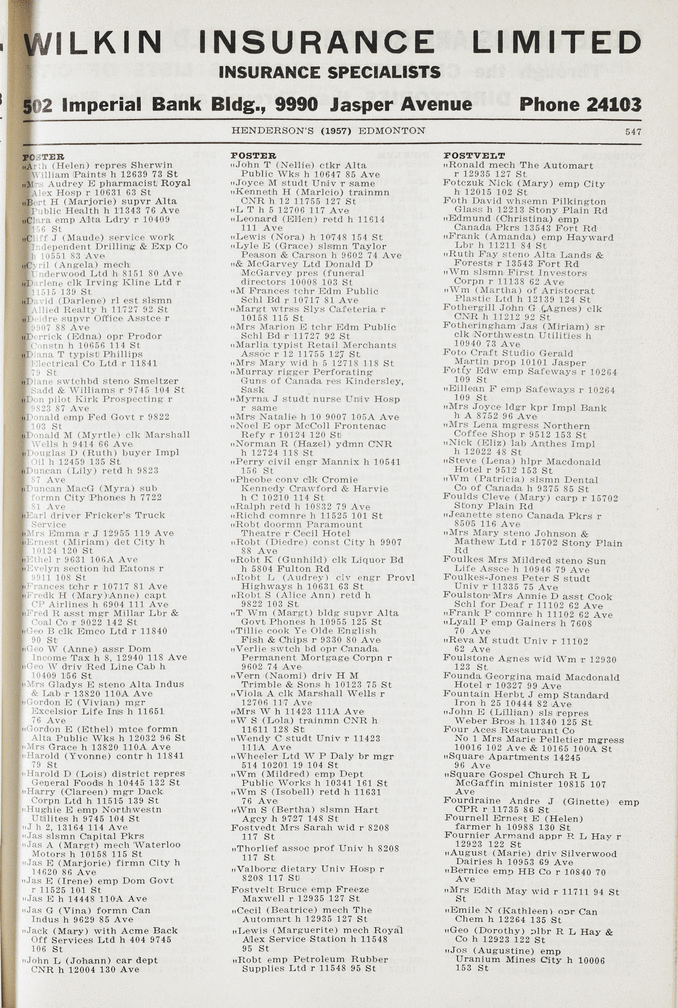 WILKIN INSURANCE LIMITED
INSURANCE SPECIALISTS
502 Imperial Bank Bldg., 9990 Jasper Avenue Phone 24103
HENDERSON'S (1957) EDMONTON 547
FOSTER
"Arth (Helen) repres Sherwin
William Paints h 12639 73 St
"Mrs Audrey E pharmacist Royal
Alex Hosp r 10631 63 St
"Bert H (Marjorie) supvr Alta
Public Health h 11343 76 Ave
"Clara emp Alta Ldry r 10409
156 St
"Cliff J (Maude) service work
Independent Drilling & Exp Co
h 10551 83 Ave
"Cyril (Angela) mech
Underwood Ltd h 8151 80 Ave
"Darlene clk Irving Kline Ltd r
11515 139 St
"David (Darlene) rl est slsmn
Allied Realty h 11727 92 St
"Deidre supvr Office Asstce r
9907 88 Ave
"Derrick (Edna) opr Prodor
Constn h 10656 114 St
"Diana T typist Phillips
Electrical Co Ltd r 11841
79 St
"Diane swtchbd steno Smeltzer
Sadd & Williams r 9745 104 St
"Don pilot Kirk Prospecting r
9823 87 Ave
"Donald emp Fed Govt r 9822
103 St
"Donald M (Myrtle) clk Marshall
Wells h 9414 66 Ave
"Douglas D (Ruth) buyer Impl
Oil h 12459 135 St
"Duncan (Lily) retd h 9823
87 Ave
"Duncan MacG (Myra) sub
formn City Phones h 7722
81 Ave
"Earl driver Fricker's Truck
Service
"Mrs Emma r J 12955 119 Ave
"Ernest (Miriam) det City h
10124 120 St
"Ethel r 9631 106A Ave
"Evelyn section hd Eatons r
9911 108 St
"Frances tchr r 10717 81 Ave
"Fredk H (Mary)Anne) capt
CP Airlines h 6904 111 Ave
"Fred R asst mgr Millar Lbr &
Coal Co r 9022 142 St
"Geo B clk Emco Ltd r 11840
90 St
"Geo W (Anne) assr Dom
Income Tax h 8, 12940 118 Ave
"Geo W driv Red Line Cab h
10409 156 St
"Mrs Gladys E steno Alta Indus
& Lab r 13820 110A Ave
"Gordon E (Vivian) mgr
Excelsior Life Ins h 11651
76 Ave
"Gordon E (Ethel) mtce formn
Alta Public Wks h 12032 96 St
"Mrs Grace h 13820 110A Ave
"Harold (Yvonne) contr h 11841
79 St
"Harold D (Lois) district repres
General Foods h 10445 132 St
"Harry (Clareen) mgr Dack
Corpn Ltd h 11515 139 St
"Hughie E emp Northwestn
Utilites h 9745 104 St
"J h 2, 13164 114 Ave
"Jas slsmn Capital Pkrs
"Jas A (Margt) mech Waterloo
Motors h 10158 115 St
"Jas E (Marjorie) firmn City h
14620 86 Ave
"Jas E (Irene) emp Dom Govt
r 11525 101 St
"Jas E h 14448 110A Ave
"Jas G (Vina) formn Can
Indus h 9629 85 Ave
"Jack (Mary) with Acme Back
Off Services Ltd h 404 9745
106 St
"John L (Johann) car dept
CNR h 12004 130 Ave
FOSTER
"John T (Nellie) ctkr Alta
Public Wks h 10647 85 Ave
"Joyce M studt Univ r same
"Kenneth H (Marlcio) trainmn
CNR h 12 11755 127 St
"L T h 5 12706 117 Ave
"Leonard (Ellen) retd h 11614
111 Ave
"Lewis (Nora) h 10748 154 St
"Lyle E (Grace) slsmn Taylor
Peason & Carson h 9602 74 Ave
"& McGarvey Ltd Donald D
McGarvey pres (funeral
directors 10008 103 St
"M Frances tchr Edm Public
Schl Bd r 10717 81 Ave
"Margt wtrss Slys Cafeteria r
10158 115 St
"Mrs Marion E tchr Edm Public
Schl Bd r 11727 92 St
"Marlia typist Retail Merchants
Assoc r 12 11755 127 St
"Mrs Mary wid h 5 12718 118 St
"Murray rigger Perforating
Guns of Canada res Kindersley,
Sask
"Myrna J studt nurse Univ Hosp
r same
"Mrs Natalie h 10 9007 105A Ave
"Noel E opr McColl Frontenac
Refy r 10124 120 St
"Norman R (Hazel) ydmn CNR
h 12724 118 St
"Perry civil engr Mannix h 10541
156 St
"Pheobe conv clk Cromie
Kennedy Crawford & Harvie
h C 10210 114 St
"Ralph retd h 10832 79 Ave
"Richd comnre h 11525 101 St
"Robt doormn Paramount
Theatre r Cecil Hotel
"Robt (Diedre) const City h 9907
88 Ave
"Robt K (Gunhild) clk Liquor Bd
h 5804 Fulton Rd
"Robt L (Audrey) civ engr Provl
Highways h 10631 63 St
"Robt S (Alice Ann) retd h
9822 103 St
"T Wm (Margt) bldg supvr Alta
Govt Phones h 10955 125 St
"Tillie cook Ye Olde English
Fish & Chips r 9330 80 Ave
"Verlie swtch bd opr Canada
Permanent Mortgage Corpn r
9602 74 Ave
"Vern (Naomi) driv H M
Trimble & Sons h 10123 75 St
"Viola A clk Marshall Wells r
12706 117 Ave
"Mrs W h 11423 111A Ave
"W S (Lola) trainmn CNR h
11611 128 St
"Wendy C studt Univ r 11423
111A Ave
"Wheeler Ltd W P Daly br mgr
514 10201 19 104 St
"Wm (Mildred) emp Dept
Public Works h 10341 161 St
"Wm S (Isobell) retd h 11631
76 Ave
"Wm S (Bertha) slsmn Hart
Agcy h 9727 148 St
Fostvedt Mrs Sarah wid r 8208
117 St
"Thorlief assoc prof Univ h 8208
117 St
"Valborg dietary Univ Hosp r
8208 117 St
Fostvelt Bruce emp Freeze
Maxwell r 12935 127 St
"Cecil (Beatrice) mech The
Automart h 12935 127 St
"Lewis (Marguerite) mech Royal
Alex Service Station h 11548
95 St
"Robt emp Petroleum Rubber
Supplies Ltd r 11548 95 St
FOSTVELT
"Ronald mech The Automart
r 12935 127 St
Fotczuk Nick (Mary) emp City
h 12015 102 St
Foth David whsemn Pilkington
Glass h 12213 Stony Plain Rd
"Edmund (Christina) emp
Canada Pkrs 13543 Fort Rd
"Frank (Amanda) emp Hayward
Lbr h 11211 84 St
"Ruth Fay steno Alta Lands &
Forests r 13543 Fort Rd
"Wm slsmn First Investors
Corpn r 11138 62 Ave
"Wm (Martha) of Aristocrat
Plastic Ltd h 12139 124 St
Fothergill John G (Agnes) clk
CNR h 11212 92 St
Fotheringham Jas (Miriam) sr
clk Northwestn Utilities h
10940 73 Ave
Foto Craft Studio Gerald
Martin prop 10101 Jasper
Fotfy Edw emp Safeways r 10264
109 St
"Eillean F emp Safeways r 10264
109 St
"Mrs Joyce ldgr kpr Impl Bank
h A 8752 96 Ave
"Mrs Lena mgress Northern
Coffee Shop r 9512 153 St
"Nick (Eliz) lab Anthes Impl
h 12022 48 St
"Steve (Lena) hlpr Macdonald
Hotel r 9512 153 St
"Wm (Patricia) slsmn Dental
Co of Canada h 9375 85 St
Foulds Cleve (Mary) carp r 15702
Stony Plain Rd
"Jeanette steno Canada Pkrs r
8505 116 Ave
"Mrs Mary steno Johnson &
Mathew Ltd r 15702 Stony Plain
Rd
Foulkes Mrs Mildred steno Sun
Life Assce h 10946 79 Ave
Foulkes-Jones Peter S studt
Univ r 11335 75 Ave
Foulston Mrs Annie D asst Cook
Schl for Deaf r 11102 62 Ave
"Frank P comnre h 11102 62 Ave
"Lyall P emp Gainers h 7608
70 Ave
"Reva M studt Univ r 11102
62 Ave
Foulstone Agnes wid Wm r 12930
123 St
Founda Georgina maid Macdonald
Hotel r 10327 99 Ave
Fountain Herbt J emp Standard
Iron h 25 10444 82 Ave
"John E (Lillian) sls repres
Weber Bros h 11340 125 St
Four Aces Restaurant Co
No 1 Mrs Marie Pelletier mgress
10016 102 Ave & 10165 100A St
"Square Apartments 14245
96 Ave
"Square Gospel Church R L
McGaffin minister 10815 107
Ave
Fourdraine Andre J (Ginette) emp
CPR r 11735 86 St
Fournell Ernest E (Helen)
farmer h 10988 130 St
Fournier Armand appr R L Hay r
12923 122 St
"August (Marie) driv Silverwood
Dairies h 10953 69 Ave
"Bernice emp HB Co r 10840 70
Ave
"Mrs Edith May wid r 11711 94 St
St
"Emile N (Kathleen) opr Can
Chem h 12264 135 St
"Geo (Dorothy) plbr R L Hay &
Co h 12923 122 St
"Jos (Augustine) emp
Uranium Mines City h 10006
153 St